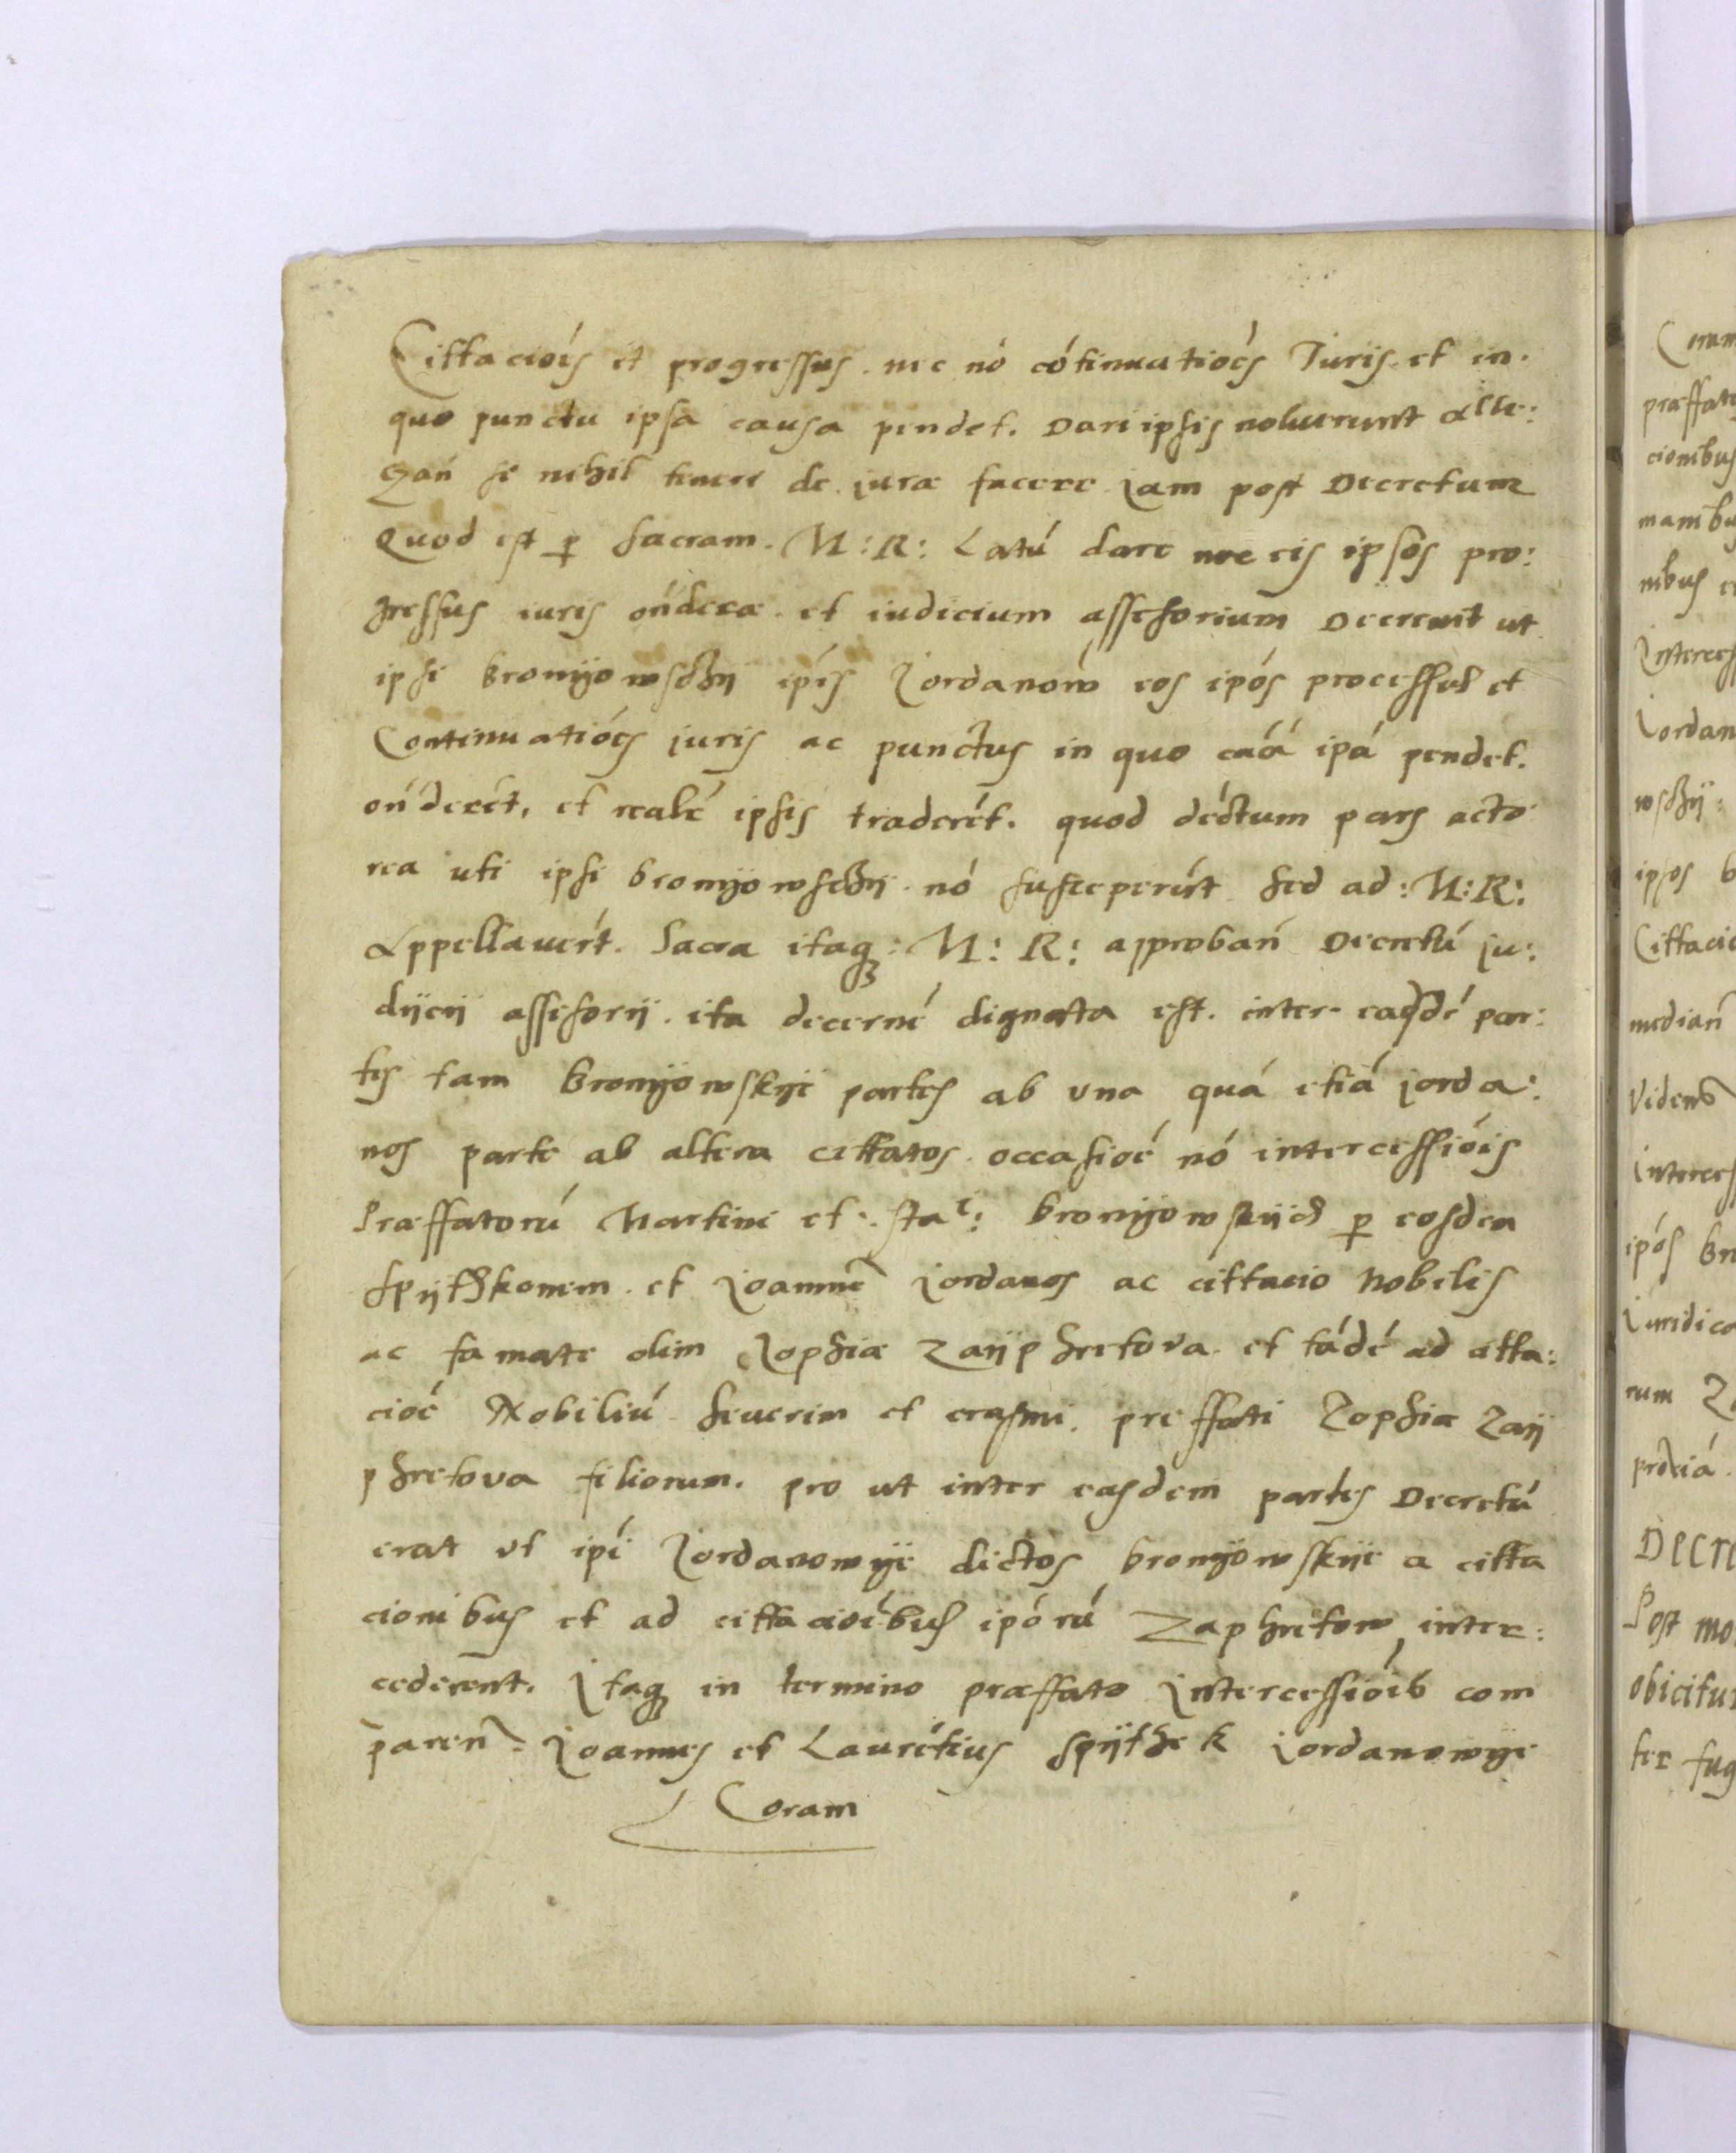 Cittacióis et progressus. nec nó cótinuatióes Juris. et in.
quo punctu ipsa causa pendet. Dari ipsis noluerunt alle:
gań se nihil teneri de jure facere jam post Decretum
Quod est p sacram. M:R: Latú dare nec eis ipsos pro:
gressus iuris ońdere. et iudicium assesorium Decrevit ut
ipsi bronyowschy ipís Jordanów eos ipós processus et
Continuatióes juris ac punctus in quo caá ipá pendet.
ońderét, et realé ipsis traderét. quod déctum pars acto
rea uti ipsi bronyowschy. nó susceperút sed ad: M:R:
Appellavert. Sacra itaq: M: R: approbań Decretú ju:
dycy assesory. ita decerné dignata est. inter easdé par:
tes tam bronyowskye partes ab una quá etiá jorda:
nos parte ab altera cittatos. occasioé nó intercessióis
Præffatorú Martini et. sta: bronyowskych p eosdem
Spythkonem. et Joanne Jordanos ac cittacio Nobilis
ac famate olim Zophiæ Zayphretova. et tádé ad citta:
cioé Nobiliú Severin et erasmi. preffati Zophiæ Zay
phretova filiorum. pro ut inter easdem partes Decretú
erat ut ipí Jordanowye dictos bronyowskye a citta
cionibus et ad cittacioíbus ipórú Zaphretow inter:
cederent. Itaq in termino præffato Intercessióib com
paren: Joannes et Laurétius Spythek Jordanowye
Coram
Coram
præffato
cionibus
manibu
nibus e
Interces
Jordan
wschy:
ipsos b
Cittacio
median
Viden
interces
ipós br
Juridico
rum Z
Decre
Post mo
obicitur
ter fug